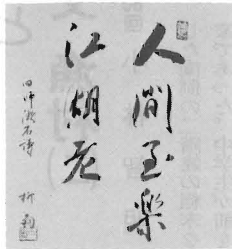 人間至樂
江湖老
漱石詩